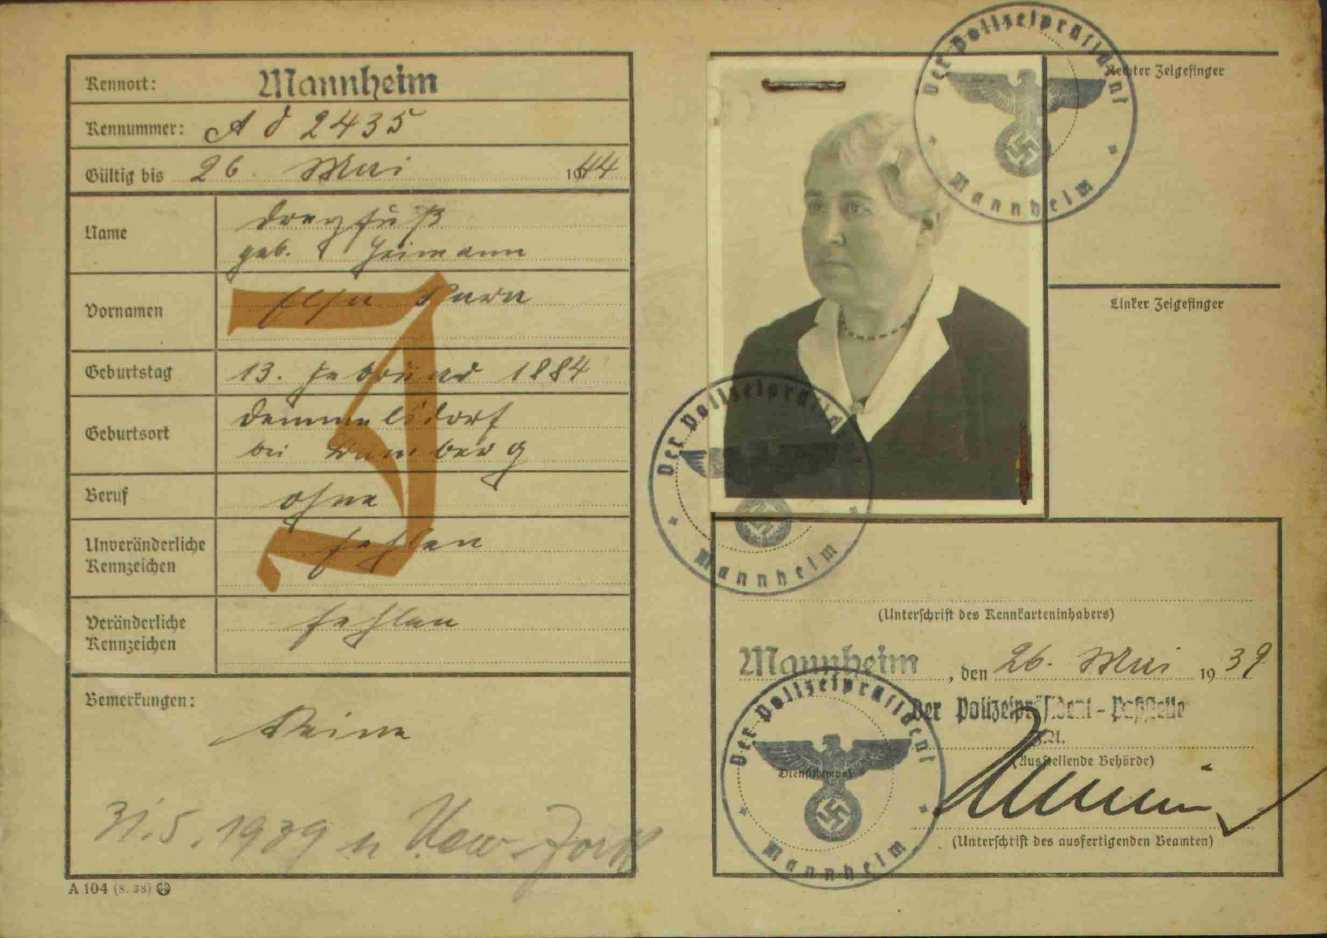 Kennort: Mannheim
Kennummer: A d 2435
Gültig bis 26. Mai 1944
Name Dreyfuß
geb. Heimann
Vornamen Elsa Sara
J
Geburtstag 13. Februar 1884
Geburtsort Demmelsdorf
bei Bamberg
Beruf ohne
Unveränderliche
Kennzeichen fehlen
Veränderliche
Kennzeichen fehlen
Bemerkungen:
Keine
31.5.1939 n New-York
A 104 (8. 38)
Der Polizeipräsident
Mannheim
Rechter Zeigefinger
Linker Zeigefinger
Der Polizeipräsident
Mannheim
(Unterschrift des Kennkarteninhabers)
Mannheim, den 26. Mai 1939
Der Polizeipräsident - Paßstelle
(Ausstellende Behörde)
Der Polizeipräsident
Dienststempel
Mannheim
(Unterschrift des ausfertigenden Beamten)